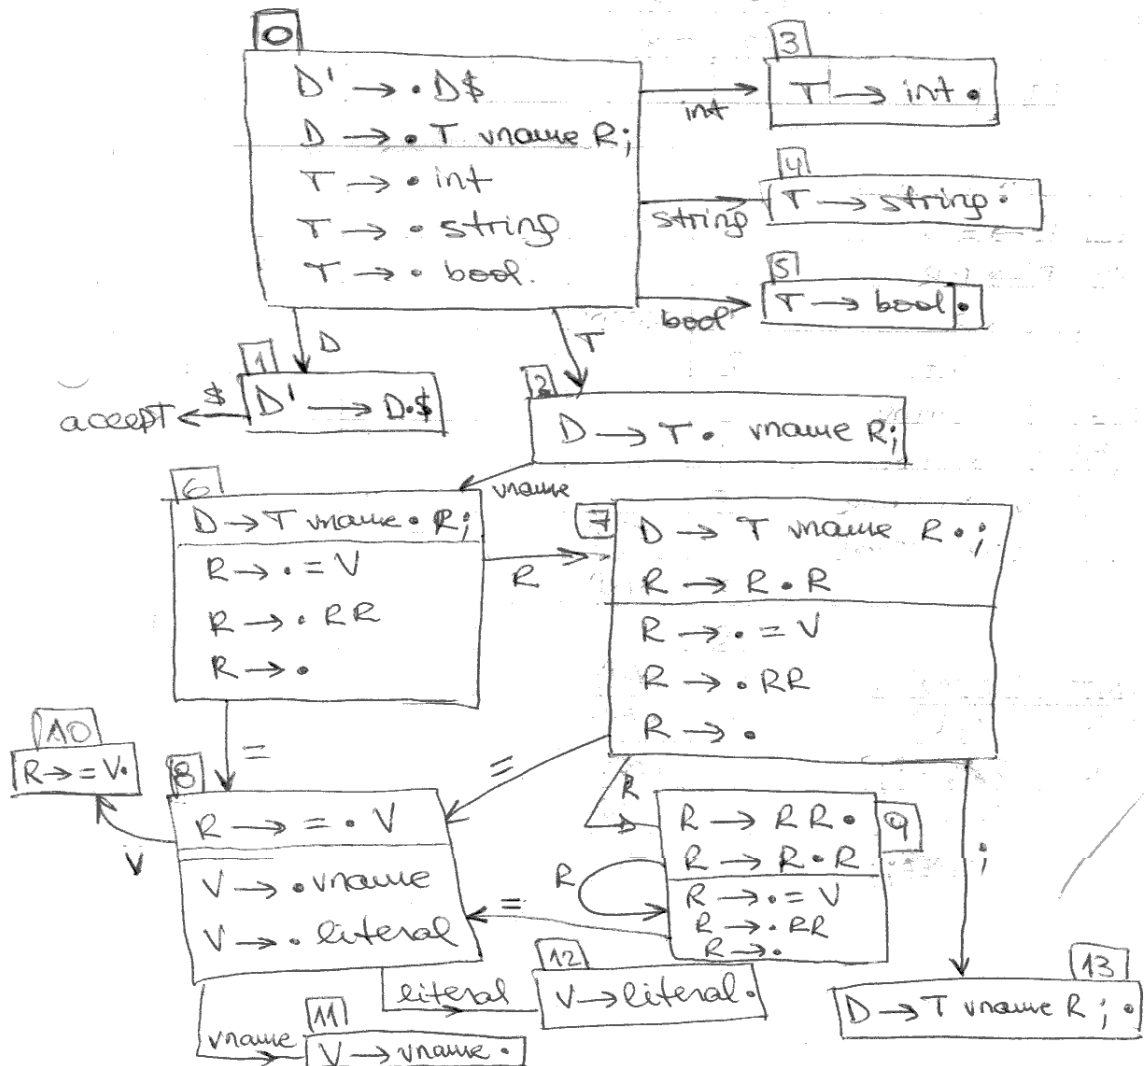 0
D' → • D$
D → • T vname R;
T → • int
T → • string
T → • bool.
int
3
T → int •
string
4
T → string •
bool
5
T → bool •
D
T
1
D' → D•$
$
accept
2
D → T • vname R;
vname
6
D → T vname • R;
R → • = V
R → • RR
R → •
R
7
D → T vname R •;
R → R • R
R → • = V
R → • RR
R → •
=
=
R
;
10
R → = V•
V
8
R → = • V
V → • vname
V → • literal
9
R → RR •
R → R • R
R → • = V
R → • RR
R → •
R
=
literal
12
V → literal •
vname
11
V → vname •
13
D → T vname R ; •